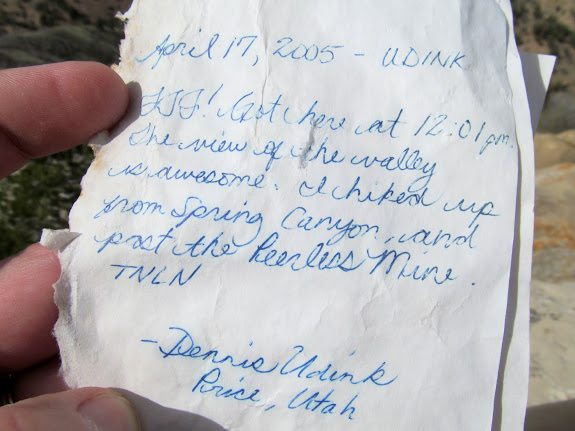 April 17, 2005 - UDINK
FTF! Got here at 12:01 pm.
The view of the valley
is awesome. I hiked up
from Spring Canyon, and
past the Peerless Mine.
TNLN
-Dennis Udink
Price, Utah